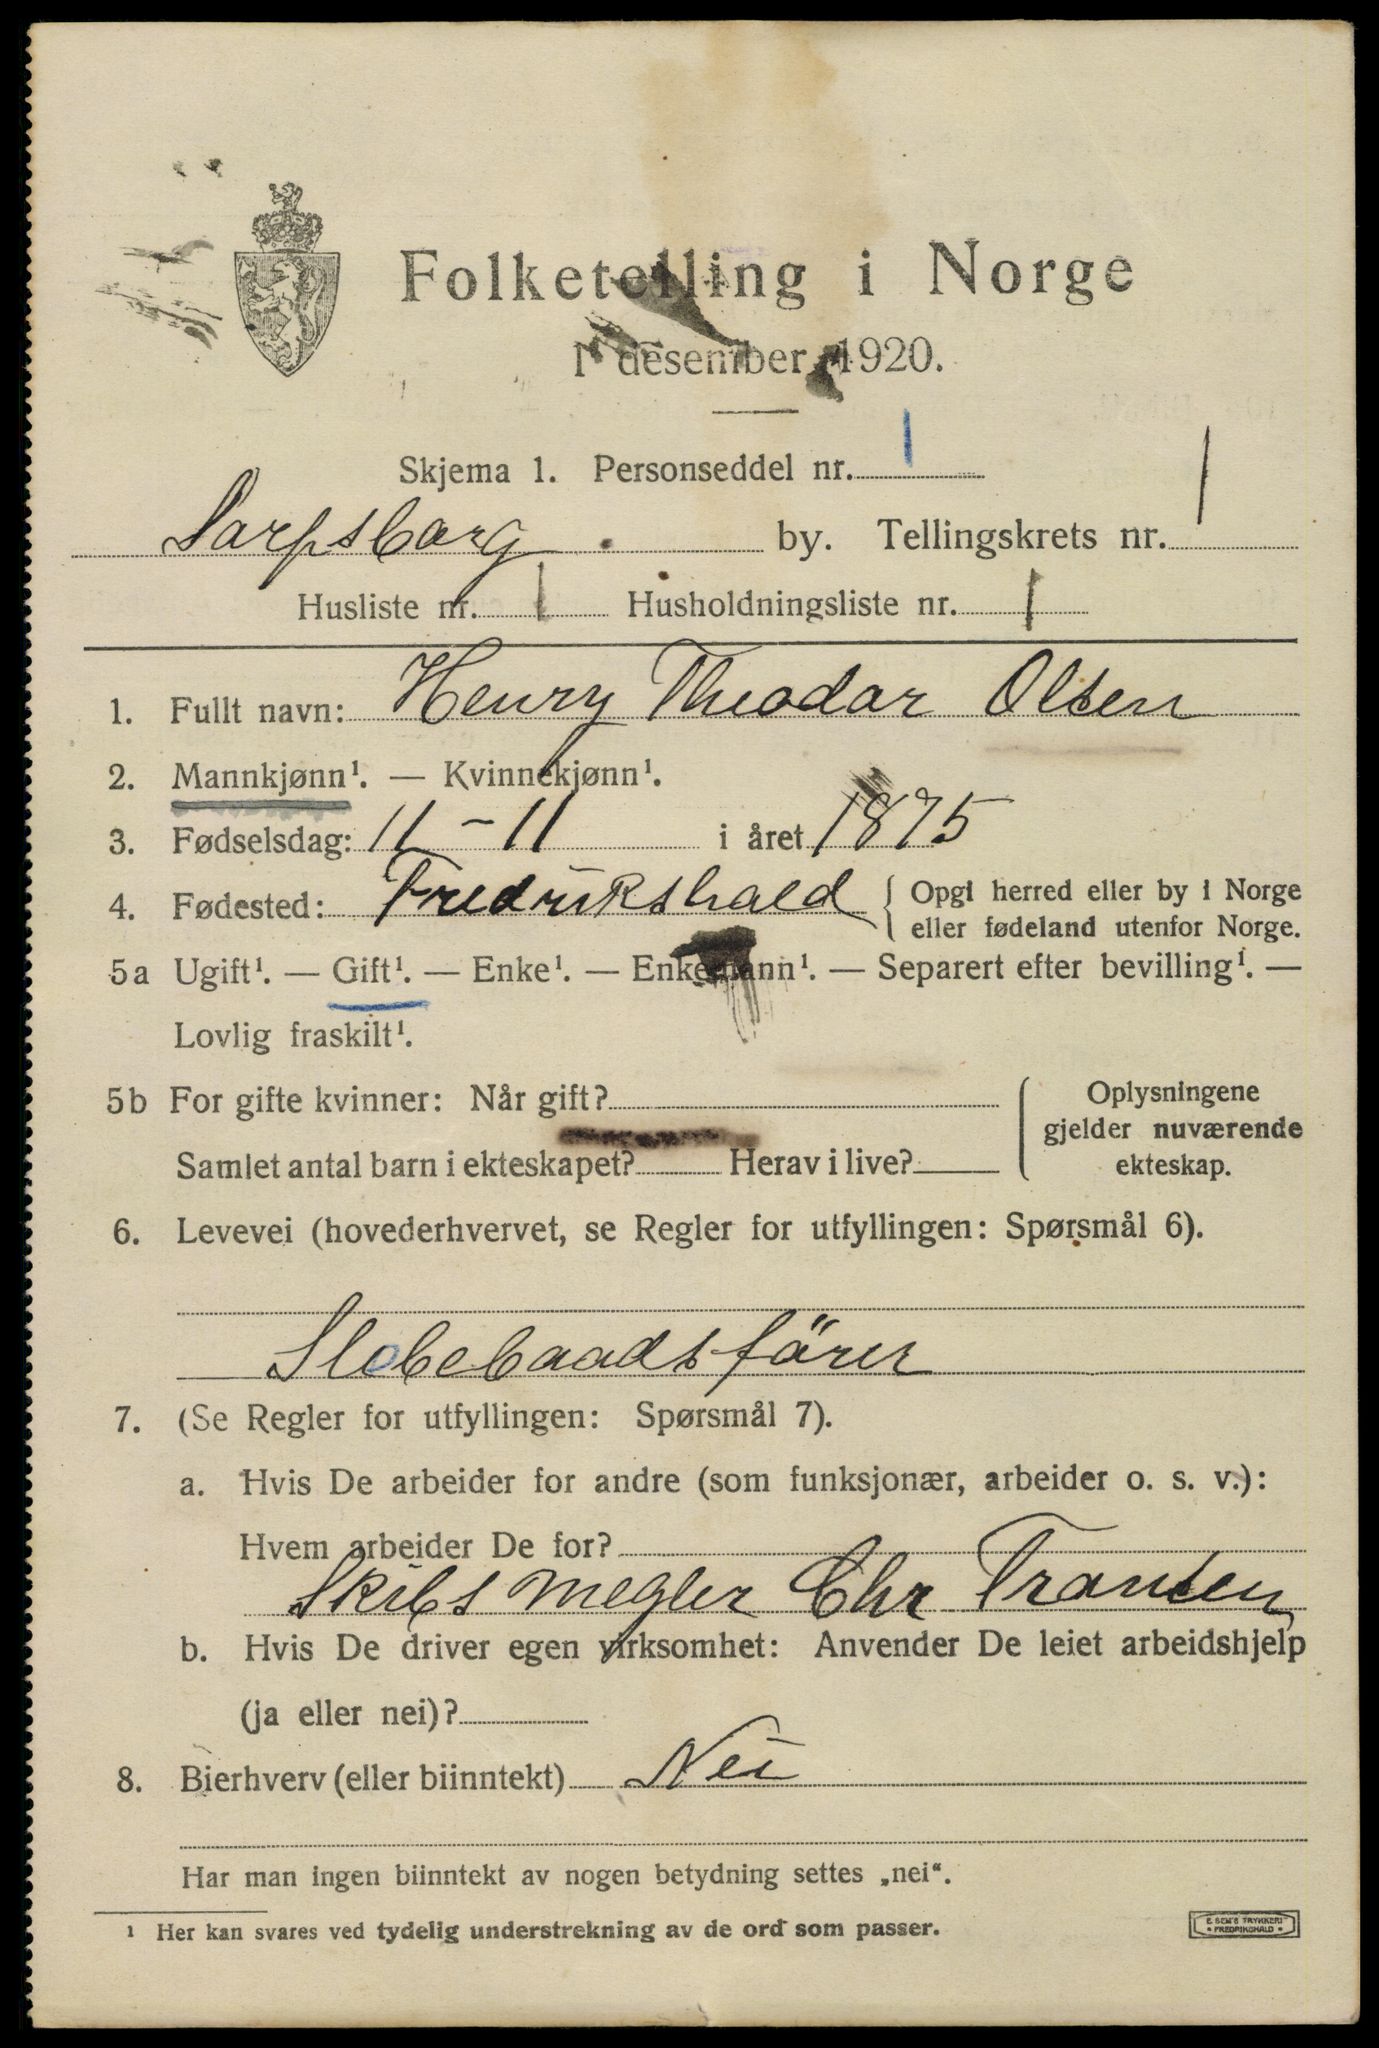 Folketelling i Norge
1 desember 1920.
Skjema 1. Personseddel nr. 1
Sarpsborg by. Tellingskrets nr. 1
Husliste nr. 1 Husholdningsliste nr. 1
1. Fullt navn: Henry Theodor Olsen
2. Mannkjønn¹. — Kvinnekjønn¹.
3. Fødselsdag: 11 - 11 i året 1875
4. Fødested: Fredrikshald { Opgi herred eller by i Norge
eller fødeland utenfor Norge.
5a Ugift¹. — Gift¹. — Enke¹. — Enkemann¹. — Separert efter bevilling¹. —
Lovlig fraskilt¹.
5b For gifte kvinner: Når gift?
Samlet antal barn i ekteskapet? Herav i live?
Oplysningene
gjelder nuværende
ekteskap.
6. Levevei (hovederhvervet, se Regler for utfyllingen: Spørsmål 6).
Slebebaadsförer
7. (Se Regler for utfyllingen: Spørsmål 7).
a. Hvis De arbeider for andre (som funksjonær, arbeider o. s. v.):
Hvem arbeider De for?
Skibs megler Chr Transen
b. Hvis De driver egen virksomhet: Anvender De leiet arbeidshjelp
(ja eller nei)?
8. Bierhverv (eller biinntekt) Nei
Har man ingen biinntekt av nogen betydning settes „nei“.
¹ Her kan svares ved tydelig understrekning av de ord som passer.
E. SEM'S TRYKKERI
• FREDRIKSHALD •